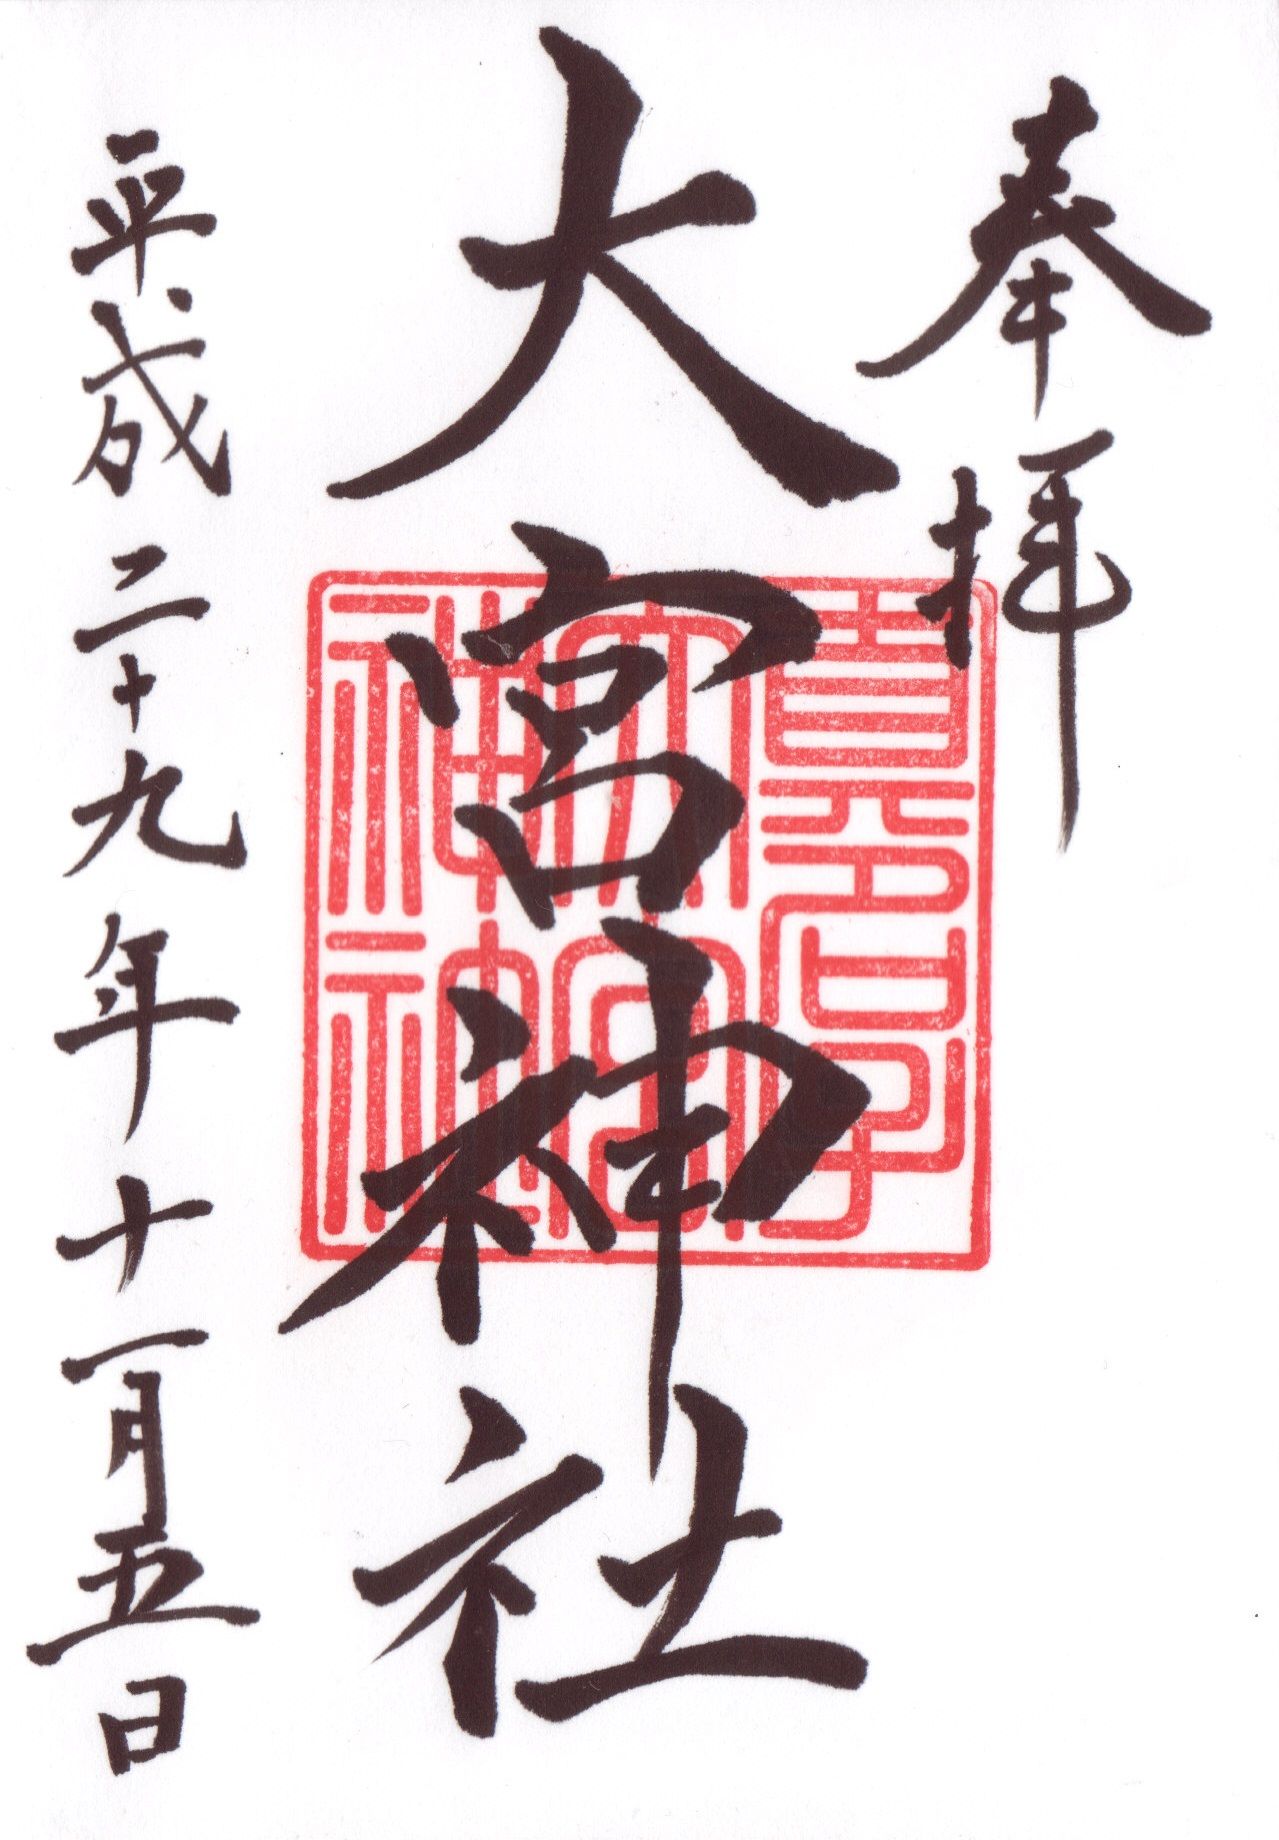 奉拝
大宮神社
平成二十九年十一月五日